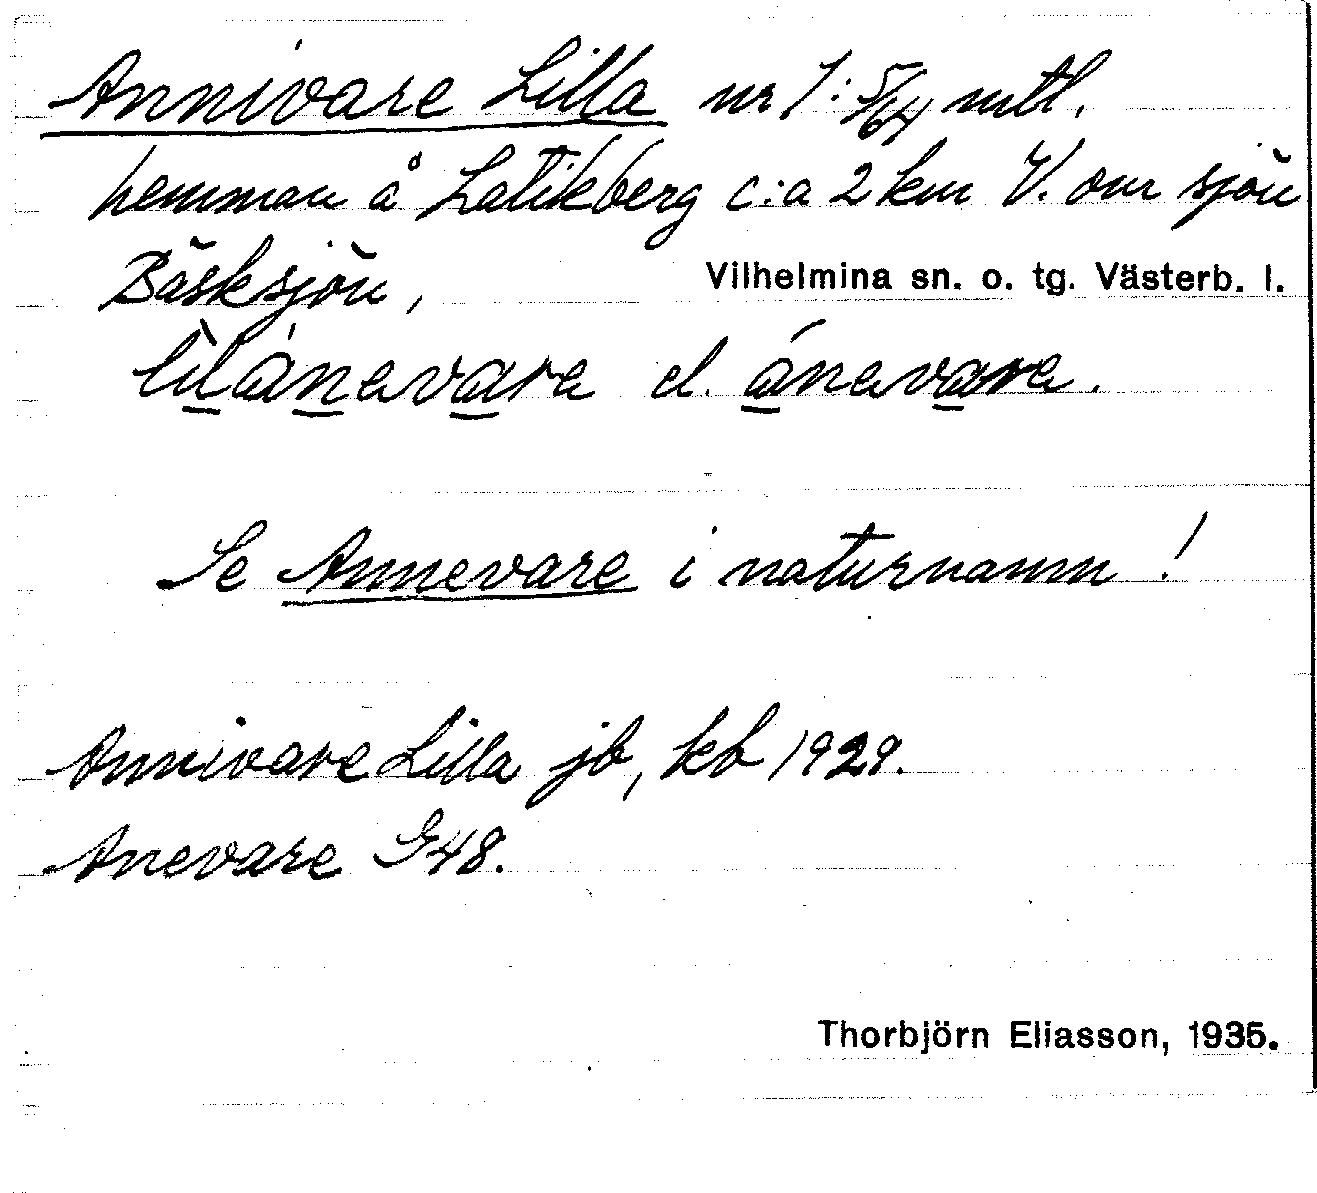 Annivare Lilla nr 1: 5/64 mtl.
hemman å Latikberg c:a 2 km V. om sjön
Bäsksjön, Vilhelmina sn. o. tg. Västerb. l.
lìlánavara el. ánavara.
Se Annevare i naturnamn!
Annivare Lilla jb, kb 1929.
Anevare G48.
Thorbjörn Eliasson, 1935.